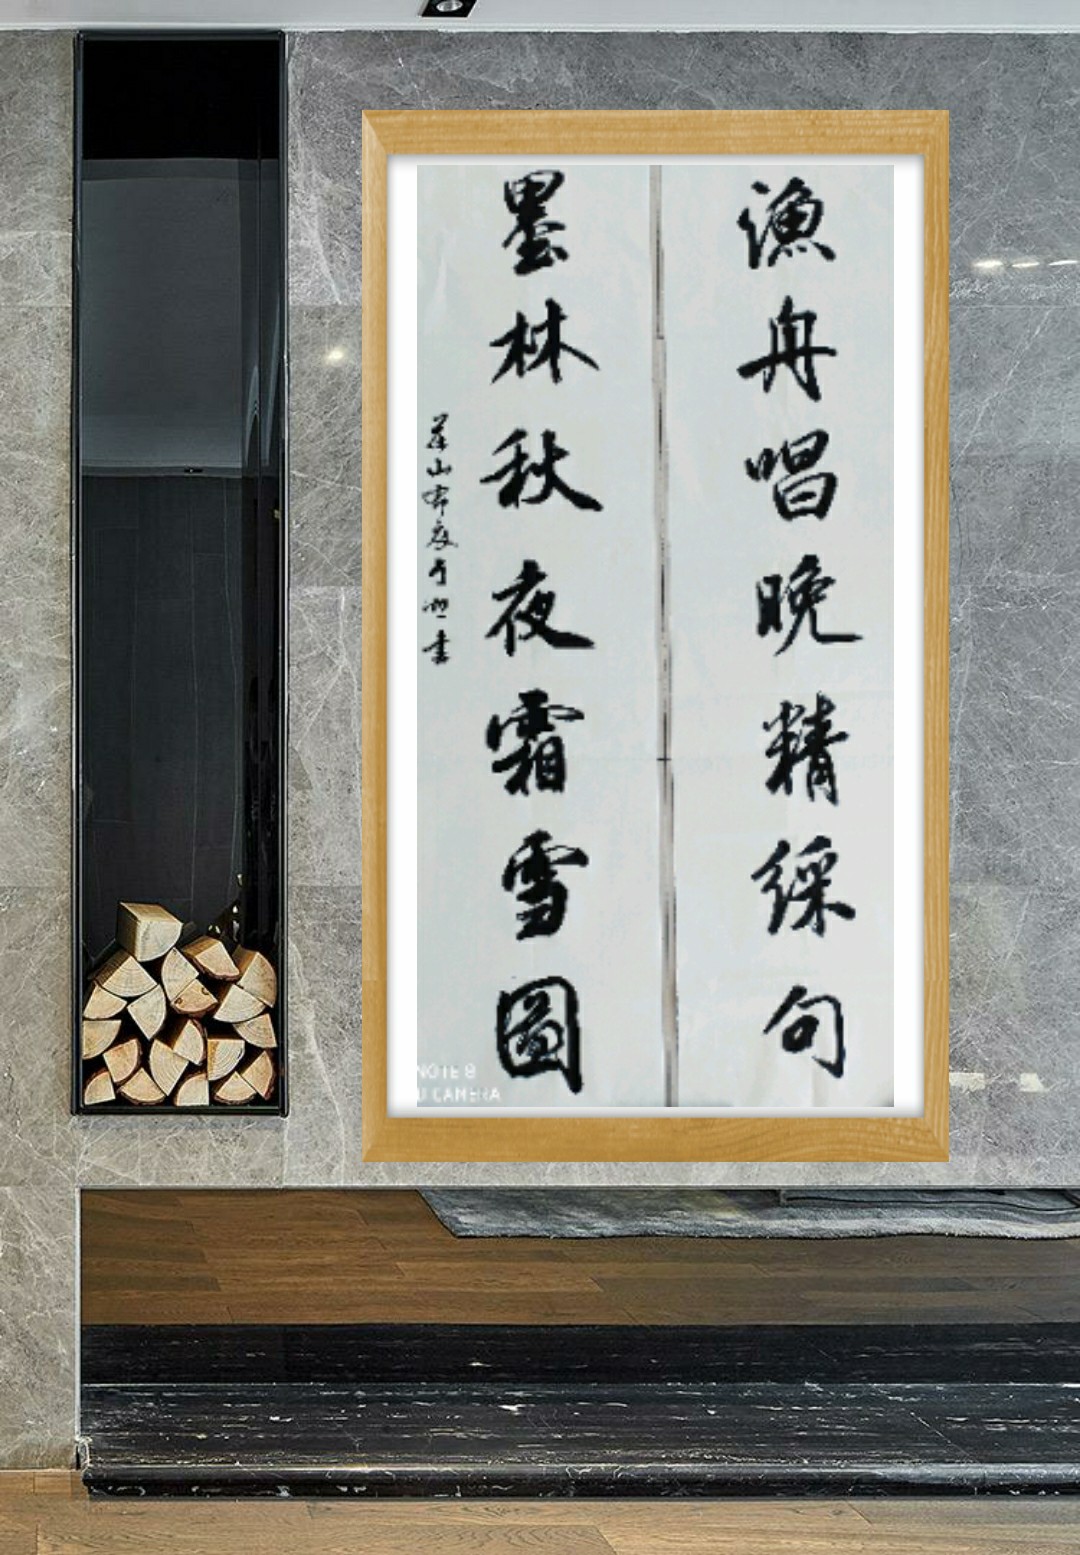 漁舟唱晚精綵句
墨林秋夜霜雪圖
山
書
NOTE 8
CAMERA